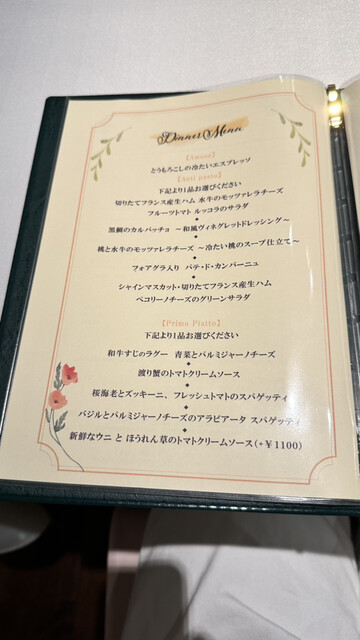 Dinner Menu
【Amuse】
とうもろこしの冷たいエスプレッソ
【Anti pasto】
下記より1品お選びください
切りたてフランス産生ハム 水牛のモッツァレラチーズ
フルーツトマト ルッコラのサラダ
◆
黒鯛のカルパッチョ ～和風ヴィネグレットドレッシング～
◆
桃と水牛のモッツァレラチーズ ～冷たい桃のスープ仕立て～
◆
フォアグラ入り パテ・ド・カンパーニュ
◆
シャインマスカット・切りたてフランス産生ハム
ペコリーノチーズのグリーンサラダ
【Primo Piatto】
下記より1品お選びください
和牛すじのラグー 青菜とパルミジャーノチーズ
◆
渡り蟹のトマトクリームソース
◆
桜海老とズッキーニ、フレッシュトマトのスパゲッティ
◆
バジルとパルミジャーノチーズのアラビアータ スパゲッティ
◆
新鮮なウニ と ほうれん草のトマトクリームソース(+￥1100)